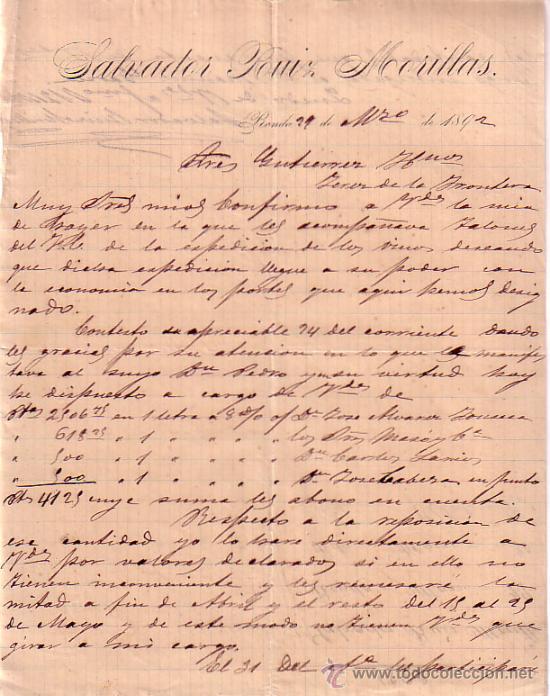 Salvador Ruiz Morillas.
Ronda 29 de Mzo de 1892
Sres Gutierrez Hnos
Jerez de la Frontera
Muy Sres mios Confirmo a Vdes la mia
de en la que les acompañava talones
del de la expedicion de los vinos deseando
que dicha expedicion llegue a su poder con
la economia en los portes que aqui hemos desig
nado.
Contesto su apreciable 24 del corriente dando
les gracias por su atension en lo que le manifes
tava al suyo Dn Pedro y en su virtud hoy
he dispuesto a cargo de Vdes de
Pts 2506 75 en 1 letra a 8 d/v o/ Dn Jose Alvarez
" 618 25 " 1 " " " " los Sres y Ca
" 500 " 1 " " " " Dn Carlos
" 500 " 1 " " " " Dn Jose Cabeza
Pts 4125 cuya suma les abono en cuenta.
Respecto a la reposicion de
esa cantidad yo lo haré directamente a
Vdes por valores declarados si en ello no
tienen inconveniente y les remesaré la
mitad a fin de Abril y el resto del 15 al 25
de Mayo y de este modo no tienen Vdes que
girar a mi cargo.
El 31 Del
todocoleccion.net